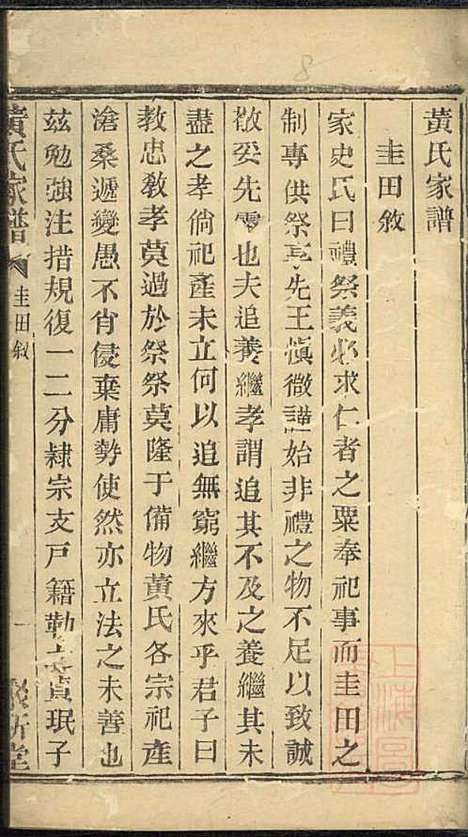 黃氏家譜
圭田敘
家史氏曰禮祭義必求仁者之粟奉祀事而圭田之
制專供祭享先王慎微謹始非禮之物不足以致誠
敬妥先靈也夫追養繼孝謂追其不及之養繼其未
盡之孝倘祀產未立何以追無窮繼方來乎君子曰
教忠敎孝莫過於祭祭莫隆于備物黃氏各宗祀產
滄桑遞變愚不肖侵棄庸勢使然亦立法之未善也
茲勉強注措規復一二分隸宗支戶籍勒之貞珉子
黃氏家譜 圭田敘 一
8